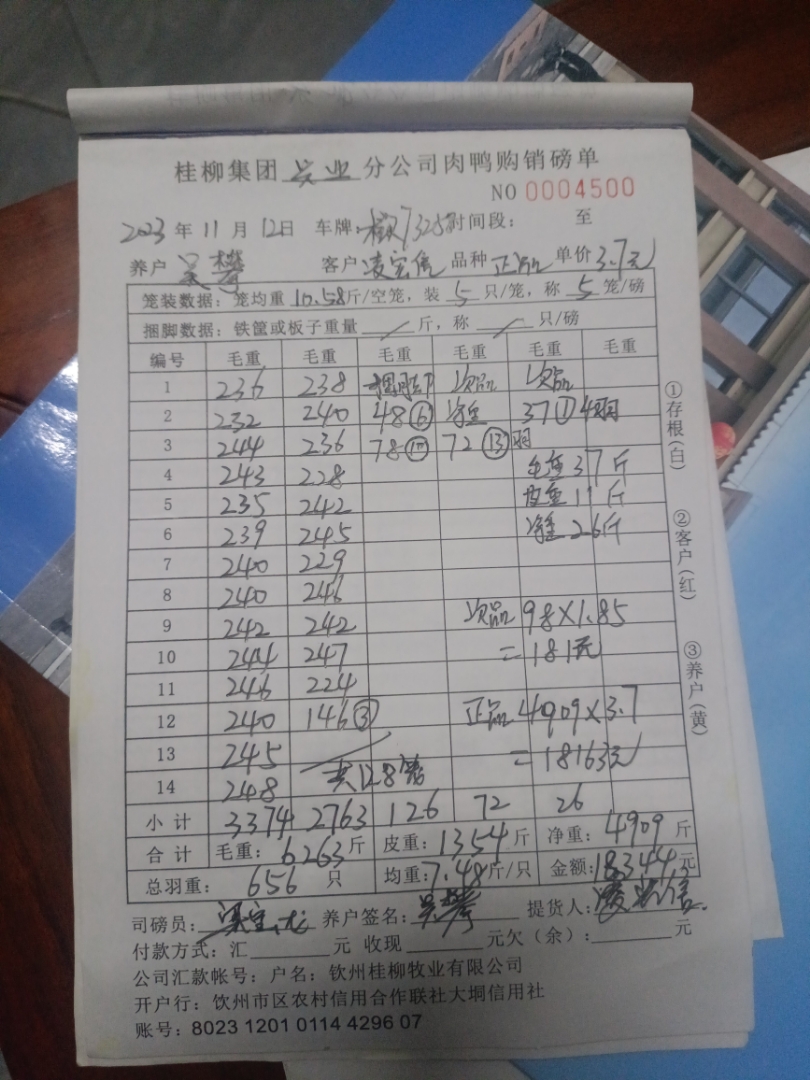 桂柳集团 兴业 分公司肉鸭购销磅单
NO 0004500
2023 年 11 月 12日 车牌: 时间段: 至
养户 吴攀 客户 凌宏信 品种 正品 单价 3.7元
笼装数据: 笼均重 10.58斤/空笼, 装 5 只/笼, 称 5 笼/磅
捆脚数据: 铁筐或板子重量 / 斤, 称 / 只/磅
编号 毛重 毛重 毛重 毛重 毛重 毛重
1 236 238 捆脚 次品 次品
2 232 240 48⑥ 净重 37① 4羽
3 244 236 78⑩ 72⑬羽
4 243 228 毛重37斤
5 235 242 皮重11斤
6 239 245 净重26斤
7 240 229
8 240 246
9 242 242 次品 98×1.85
10 244 247 =181元
11 246 224
12 240 146③ 正品 4909×3.7
13 245 =18163元
14 248 共128笼
小计 3374 2763 126 72 26
合计 毛重: 6263斤 皮重: 1354斤 净重: 4909斤
总羽重: 656 只 均重: 7.48斤/只 金额: 18344元
司磅员: 养户签名: 吴攀 提货人: 凌宏信
付款方式: 汇 元 收现 元欠(余): 元
公司汇款帐号: 户名: 钦州桂柳牧业有限公司
开户行: 钦州市区农村信用合作联社大垌信用社
账号: 8023 1201 0114 4296 07
①存根(白)
②客户(红)
③养户(黄)